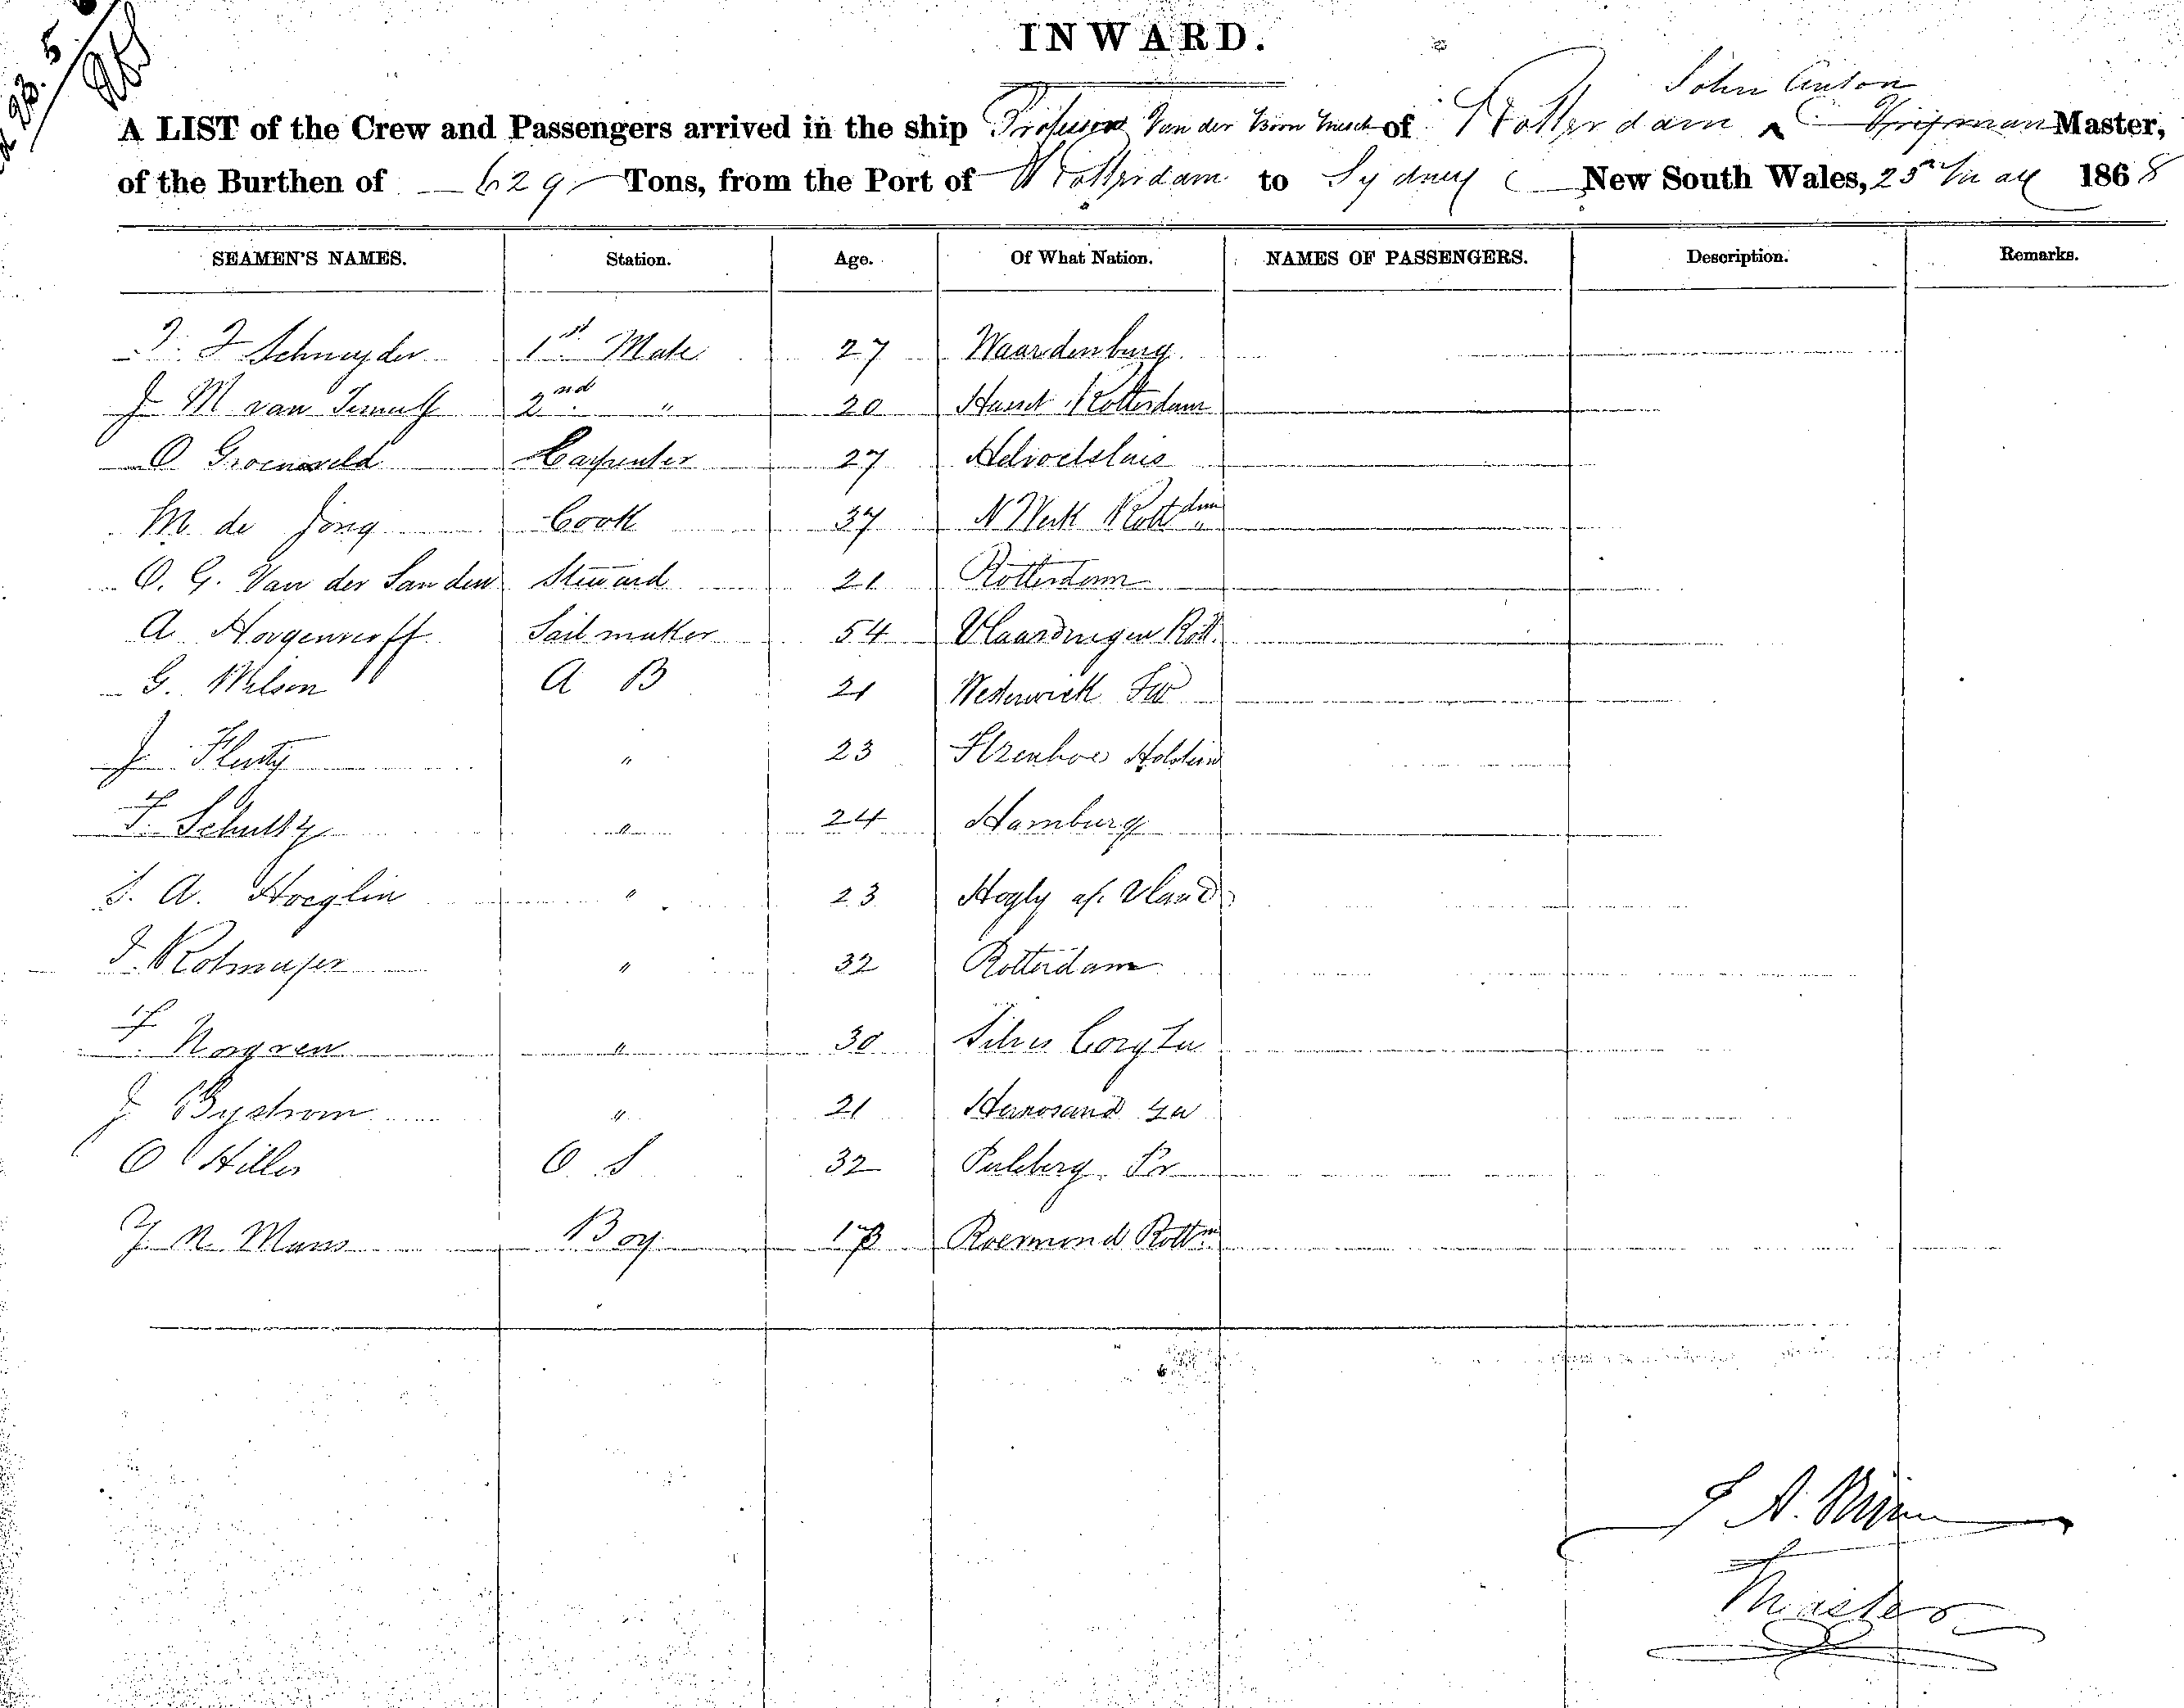 23. 5 / 68
INWARD.
John Anton
A LIST of the Crew and Passengers arrived in the ship Professor Van der of Rotterdam ^ Vrijman Master,
of the Burthen of 629 Tons, from the Port of Rotterdam to Sydney New South Wales, 25 May 1868
SEAMEN'S NAMES. Station. Age. Of What Nation. NAMES OF PASSENGERS. Description. Remarks.
J Schneyder 1st Mate 27 Waardenburg
J M van 2nd " 20 Rotterdam
O Groeneveld Carpenter 27 Helvoetsluis
M. de Jong Cook 37 N Werk Rottdm
O. G. Van der Sanden Steward 21 Rotterdam
A Sailmaker 54 Vlaardingen Rott.
G. Wilson A B 21
J. " 23 Holstein
F. Schultz " 24 Hamburg
A. Hoeglin " 23 Hogly af
J. Rotmeijer " 32 Rotterdam
F. Norgren " 30
J. Bystrom " 21 Hernosand
O Hiller O S 32 Pr
J. N. Mans Boy 18 Roermond Rottm
J A. Vrijman
Master